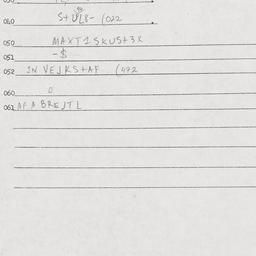 040 S+ULB- (022
050 MAXT1SKUS+3X
051 -$
052 IN VEJKS+AF (472
060 0
061 AF A BREJTL